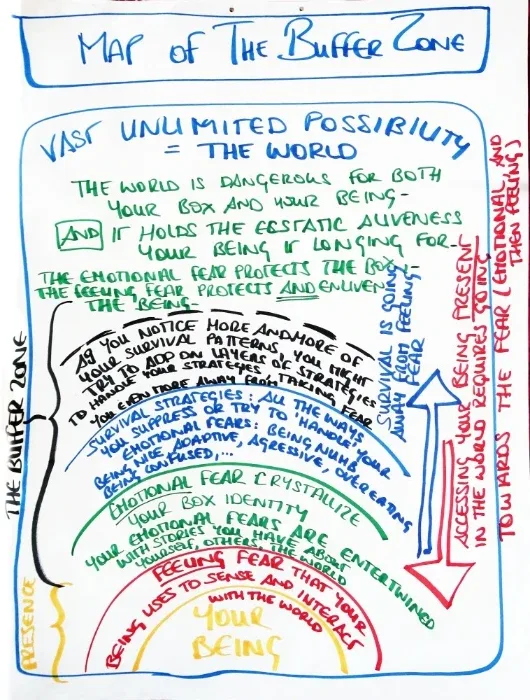 MAP OF THE BUFFER ZONE
VAST UNLIMITED POSSIBILITY
= THE WORLD
THE WORLD IS DANGEROUS FOR BOTH
YOUR BOX AND YOUR BEING-
AND IT HOLDS THE ECSTATIC ALIVENESS
YOUR BEING IS LONGING FOR-
THE EMOTIONAL FEAR PROTECTS THE BOX,
THE FEELING FEAR PROTECTS AND ENLIVEN
THE BEING-
AS YOU NOTICE MORE AND MORE OF
YOUR SURVIVAL PATTERNS, YOU MIGHT
TRY TO ADD ON LAYERS OF STRATEGIES
TO HANDLE YOUR STRATEGIES, TAKING
YOU EVEN MORE AWAY FROM FEAR
SURVIVAL STRATEGIES: ALL THE WAYS
YOU SUPPRESS OR TRY TO 'HANDLE' YOUR
EMOTIONAL FEARS: BEING NUMB
BEING NICE, ADAPTIVE, AGRESSIVE, OVEREATING
BEING CONFUSED,...
EMOTIONAL FEAR CRYSTALLIZE
YOUR BOX IDENTITY
YOUR EMOTIONAL FEARS ARE ENTERTWINED
WITH STORIES YOU HAVE ABOUT
YOURSELF, OTHERS, THE WORLD
FEELING FEAR THAT YOUR
BEING USES TO SENSE AND INTERACT
WITH THE WORLD
YOUR
BEING
THE BUFFER ZONE
PRESENCE
SURVIVAL IS GOING
AWAY FROM FEELING
FEAR
ACCESSING YOUR BEING PRESENT
IN THE WORLD REQUIRES GOING
TOWARDS THE FEAR (EMOTIONAL AND
THEN FEELING)